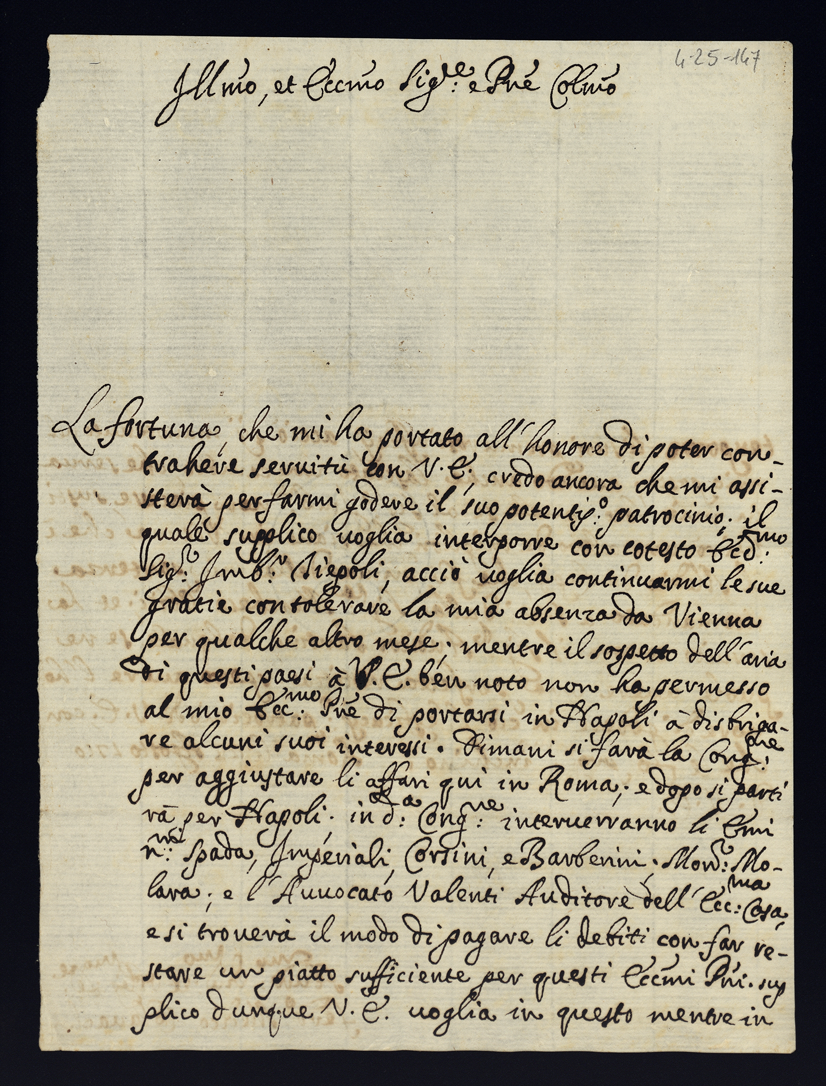 4-25-147
Jllmo, et Eccmo Sig.re e Pne Colmo
La fortuna, che mi ha portato all'honore di poter con-
trahere seruitù con V. E., credo ancora che mi assi-
sterà per farmi godere il suo potentiss.o patrocinio; il
quale supplico uoglia interporre con cotesto Eccd.mo
Sig.r Jmb.r Tiepoli, acciò uoglia continuarmi le sue
gratie con tolerare la mia absenza da Vienna
per qualche altro mese; mentre il sospetto dell'aria
di questi paesi à V. E. ben noto non ha permesso
al mio Ecc.mo Pne di portarsi in Napoli à disbriga-
re alcuni suoi interessi. Dimani si farà la Cong.ne
per aggiustare li affari qui in Roma; e dopo si parti
rà per Napoli. in d.a Cong.ne interuerranno li Emi
n.ri Spada, Jmperiali, Corsini, e Barberini; Mons.r Mo-
lara; e l'Auuocato Valenti Auditore dell'Ecc.ma Casa,
e si trouerà il modo di pagare li debiti con far re-
stare un piatto sufficiente per questi Eccmi Pni. sup
plico dunque V. E. uoglia in questo mentre in